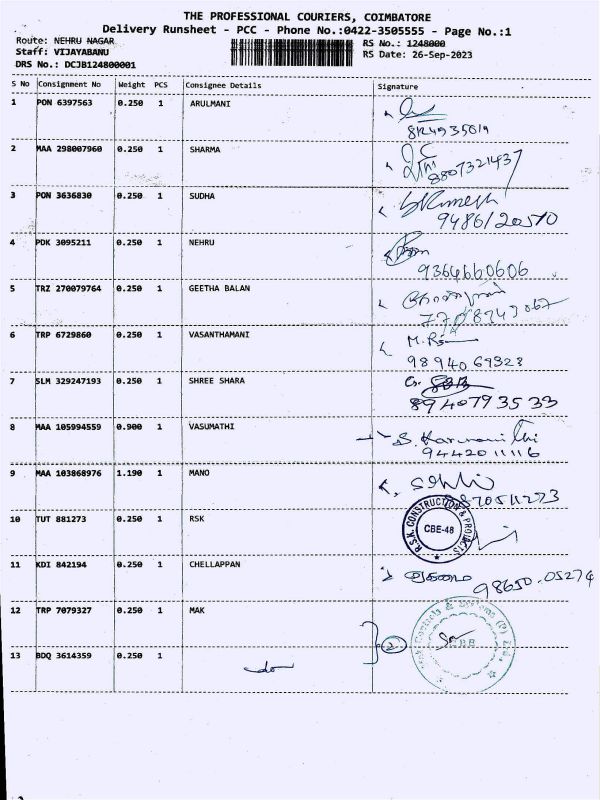 THE PROFESSIONAL COURIERS, COIMBATORE
Delivery Runsheet - PCC - Phone No.:0422-3505555 - Page No.:1
Route: NEHRU NAGAR
RS No.: 1248000
Staff: VIJAYABANU
RS Date: 26-Sep-2023
DRS No.: DCJB124800001
S No Consignment No Weight PCS Consignee Details Signature
1 PON 6397563 0.250 1 ARULMANI
2 MAA 298007960 0.250 1 SHARMA
8807321437
3 PON 3636830 0.250 1 SUDHA
9486120510
4 PDK 3095211 0.250 1 NEHRU
9364660606
5 TRZ 270079764 0.250 1 GEETHA BALAN
6 TRP 6729860 0.250 1 VASANTHAMANI
9894069323
7 SLM 329247193 0.250 1 SHREE SHARA
8940793533
8 MAA 105994559 0.900 1 VASUMATHI
9442011116
9 MAA 103868976 1.190 1 MANO
10 TUT 881273 0.250 1 RSK
R.S.K. CONSTRUCTION & PROJECTS
CBE-48
11 KDI 842194 0.250 1 CHELLAPPAN
98650.05274
12 TRP 7079327 0.250 1 MAK
2
13 BDQ 3614359 0.250 1
do